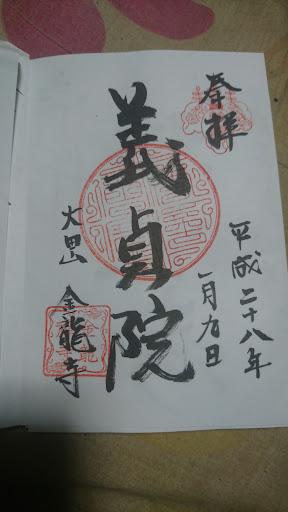 奉拝
平成二十八年
一月九日
義貞院
太田山 金龍寺